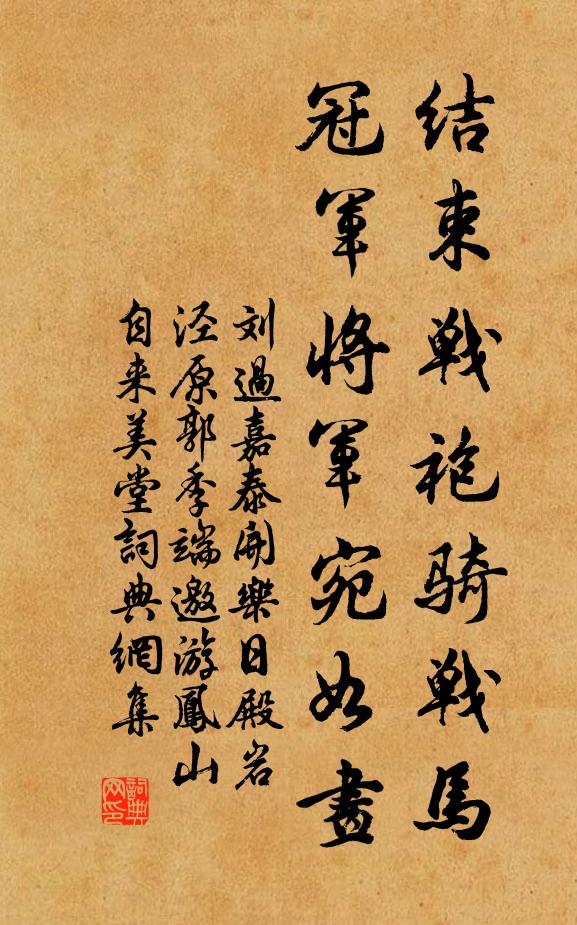 结束戦袍骑戦馬
冠軍將軍宛如畫
刘過嘉泰開樂日殿岩
泾原郭季端邀游鳳山
自来美堂詞典網集
詞典網印